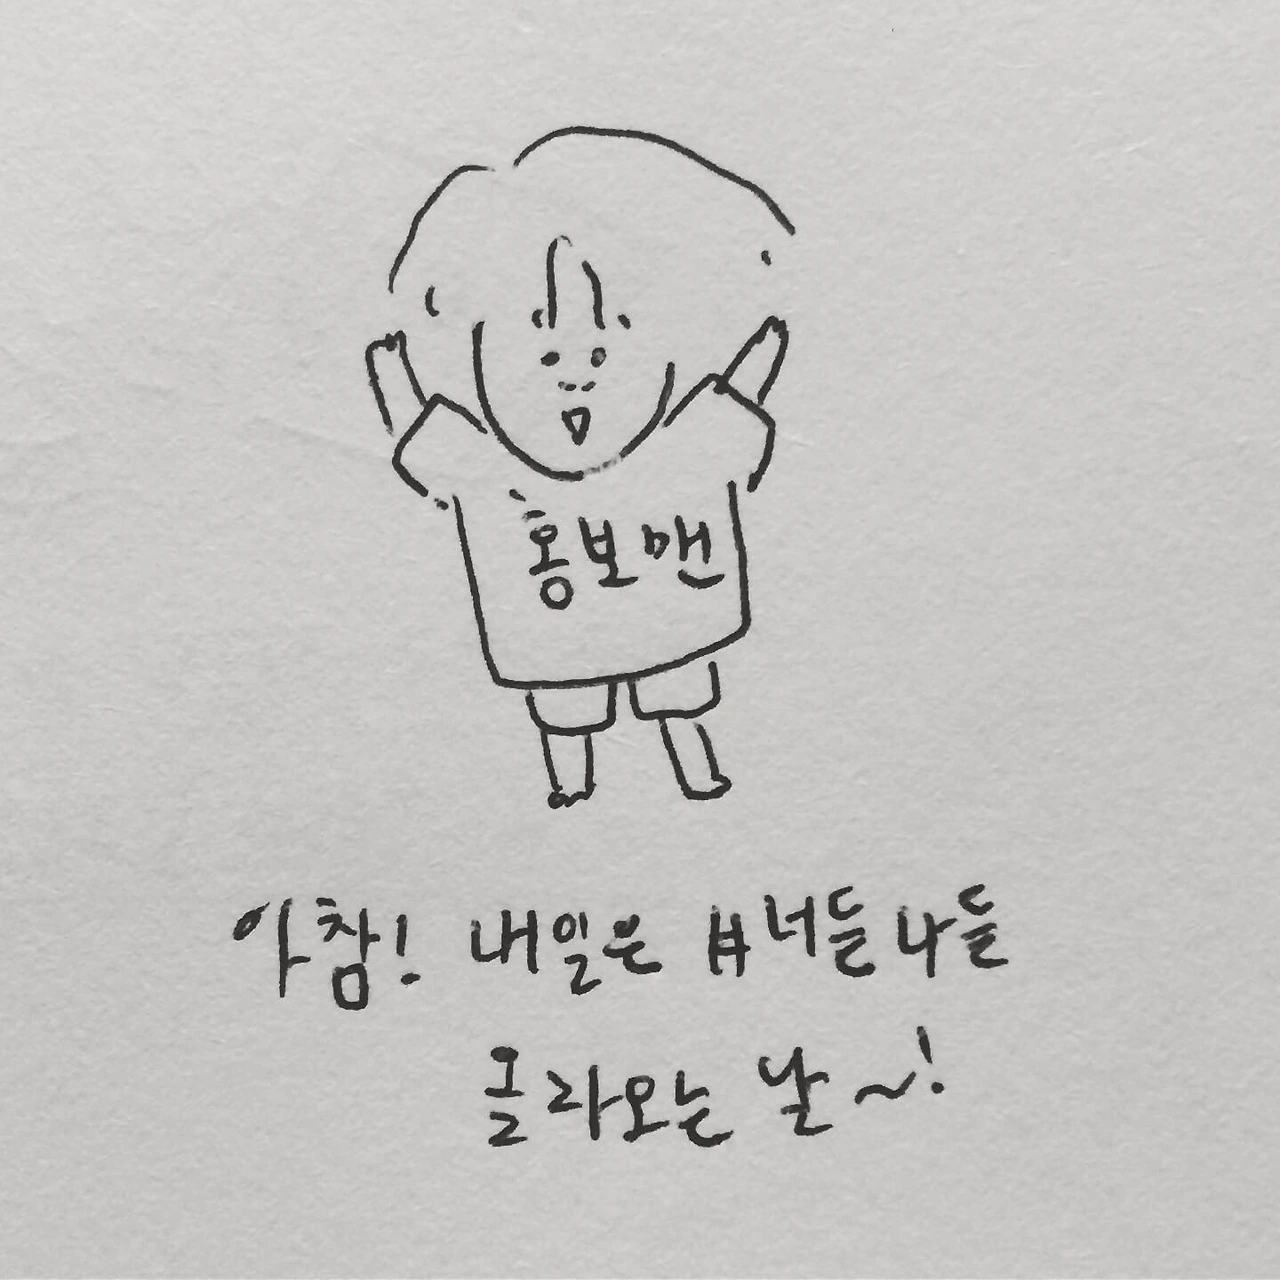 홍보맨
아참! 내일은 #너들나들
올라오는 날~!